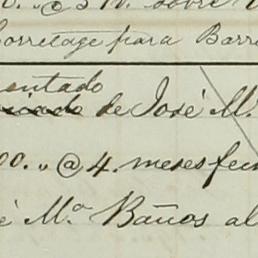 Corretage para Barr
entado
de José M.ª
00. „ @ 4. meses fec
é M.ª Baños al